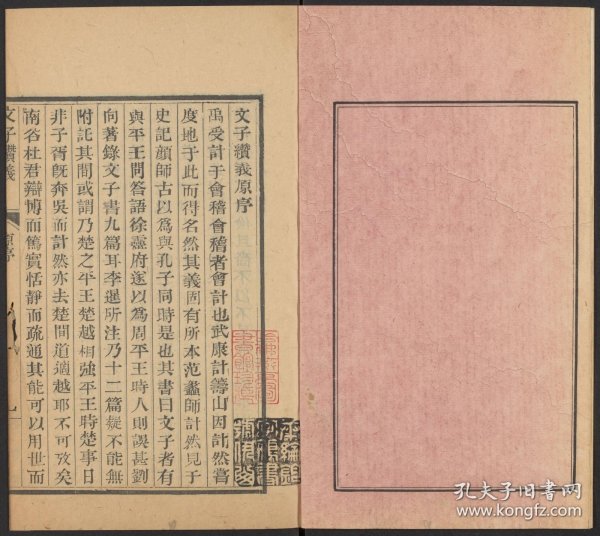 文子纘義原序
禹受計于會稽會稽者會計也武康計籌山因計然嘗
度地于此而得名然其義固有所本范蠡師計然見于
史記顔師古以爲與孔子同時是也其書曰文子者有
與平王問答語徐靈府遂以爲周平王時人則誤甚劉
向著錄文子書九篇耳李暹所注乃十二篇疑不能無
附託其間或謂乃楚之平王楚越相強平王時楚事日
非子胥旣奔吳而計然亦去楚間道適越耶不可攷矣
南谷杜君辯博而篤實恬靜而疏通其能可以用世而
文子纘義
原序
孔夫子旧書网
www.kongfz.com